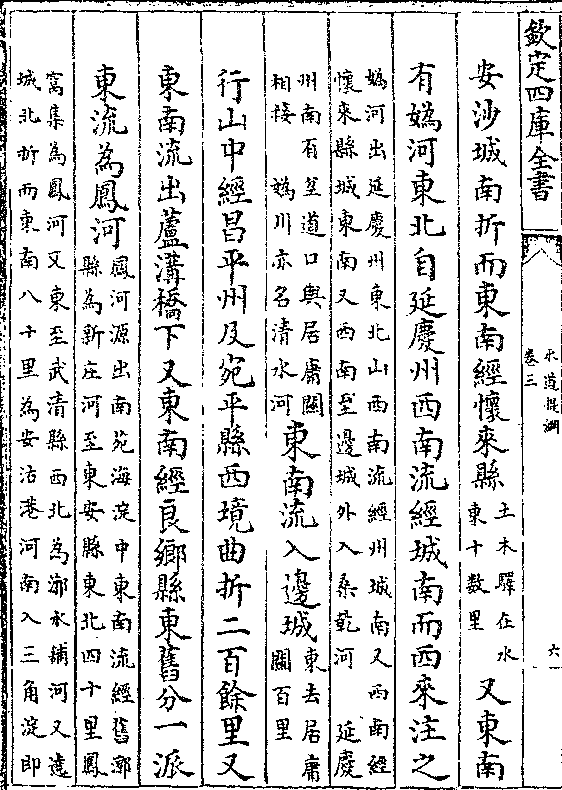 欽定四庫全書
水道提綱
卷三
六
安沙城南折而東南經懷來縣
土木驛在水
東十数里
又東南
有媯河東北自延慶州西南流經城南而西來注之
媯河出延慶州東北山西南流經州城南又西南經
懷來縣城東南又西南至邊城外入桑乾河 延慶
州南有坌道口與居庸關
相接 媯川亦名清水河
東南流入邊城
東去居庸
關百里
行山中經昌平州及宛平縣西境曲折二百餘里又
東南流出蘆溝橋下又東南經良鄉縣東舊分一派
東流為鳳河
鳳河源出南苑海淀中東南流經舊漷
縣為新庄河至東安縣東北四十里鳳
窩集為鳳河又東至武清縣西北為漷水鋪河又遶
城北折而東南八十里為安沽港河南入三角淀即